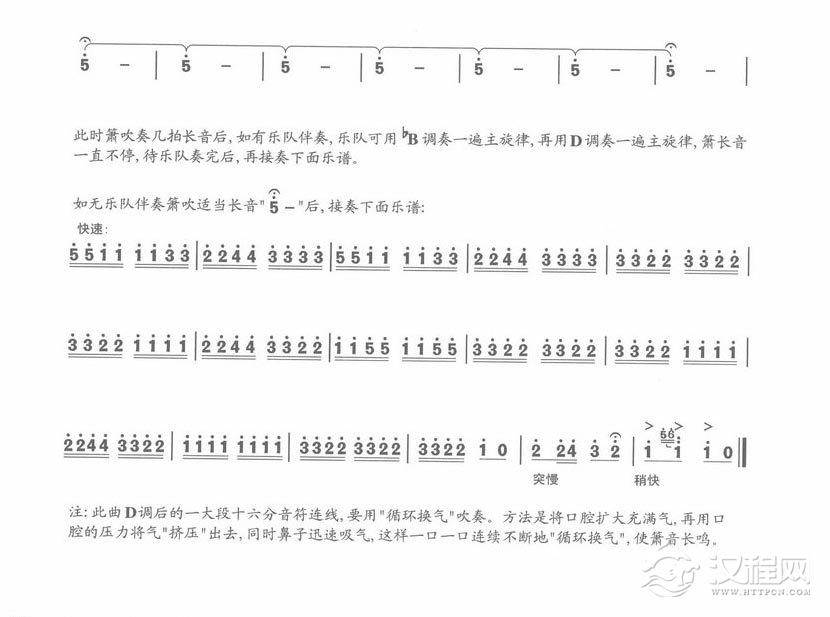 5 － | 5 － | 5 － | 5 － | 5 － | 5 － | 5 － |
此时箫吹奏几拍长音后,如有乐队伴奏,乐队可用♭B调奏一遍主旋律,再用D调奏一遍主旋律,箫长音
一直不停,待乐队奏完后,再接奏下面乐谱。
如无乐队伴奏箫吹适当长音"5－"后,接奏下面乐谱:
快速:
5511 1133 | 2244 3333 | 5511 1133 | 2244 3333 | 3322 3322 |
3322 1111 | 2244 3322 | 1155 1155 | 3322 3322 | 3322 1111 |
2244 3322 | 1111 1111 | 3322 3322 | 3322 1 0 | 2 24 3 2 | 1 56 1 1 0 ‖
突慢 稍快
注:此曲D调后的一大段十六分音符连线,要用"循环换气"吹奏。方法是将口腔扩大充满气,再用口
腔的压力将气"挤压"出去,同时鼻子迅速吸气,这样一口一口连续不断地"循环换气",使箫音长鸣。
汉程网
WWW.HTTPCN.COM